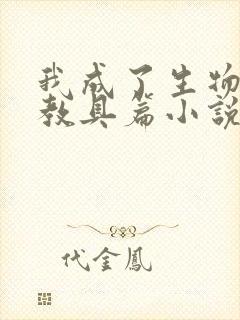 我成了生物
教具篇小說
代金鳳